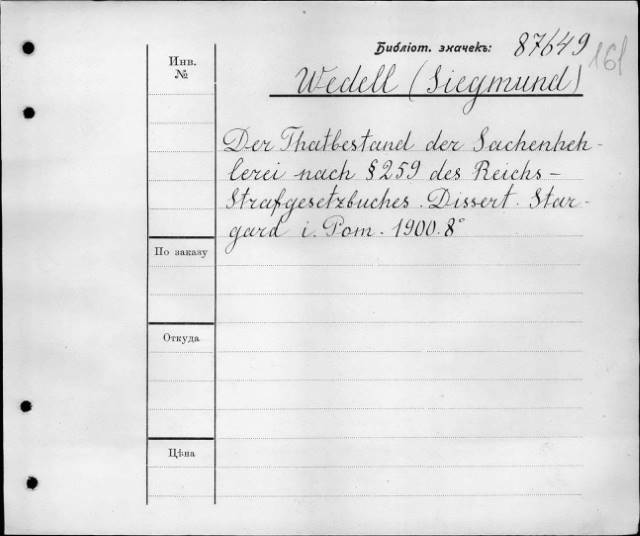 Библіот. значекъ: 87649
161
Инв.
№
Wedell (Siegmund)
Der Thatbestand der Sachenheh-
lerei nach § 259 des Reichs-
Strafgesetzbuches. Dissert. Star-
gard i. Pom. 1900. 8°
По заказу
Откуда
Цѣна